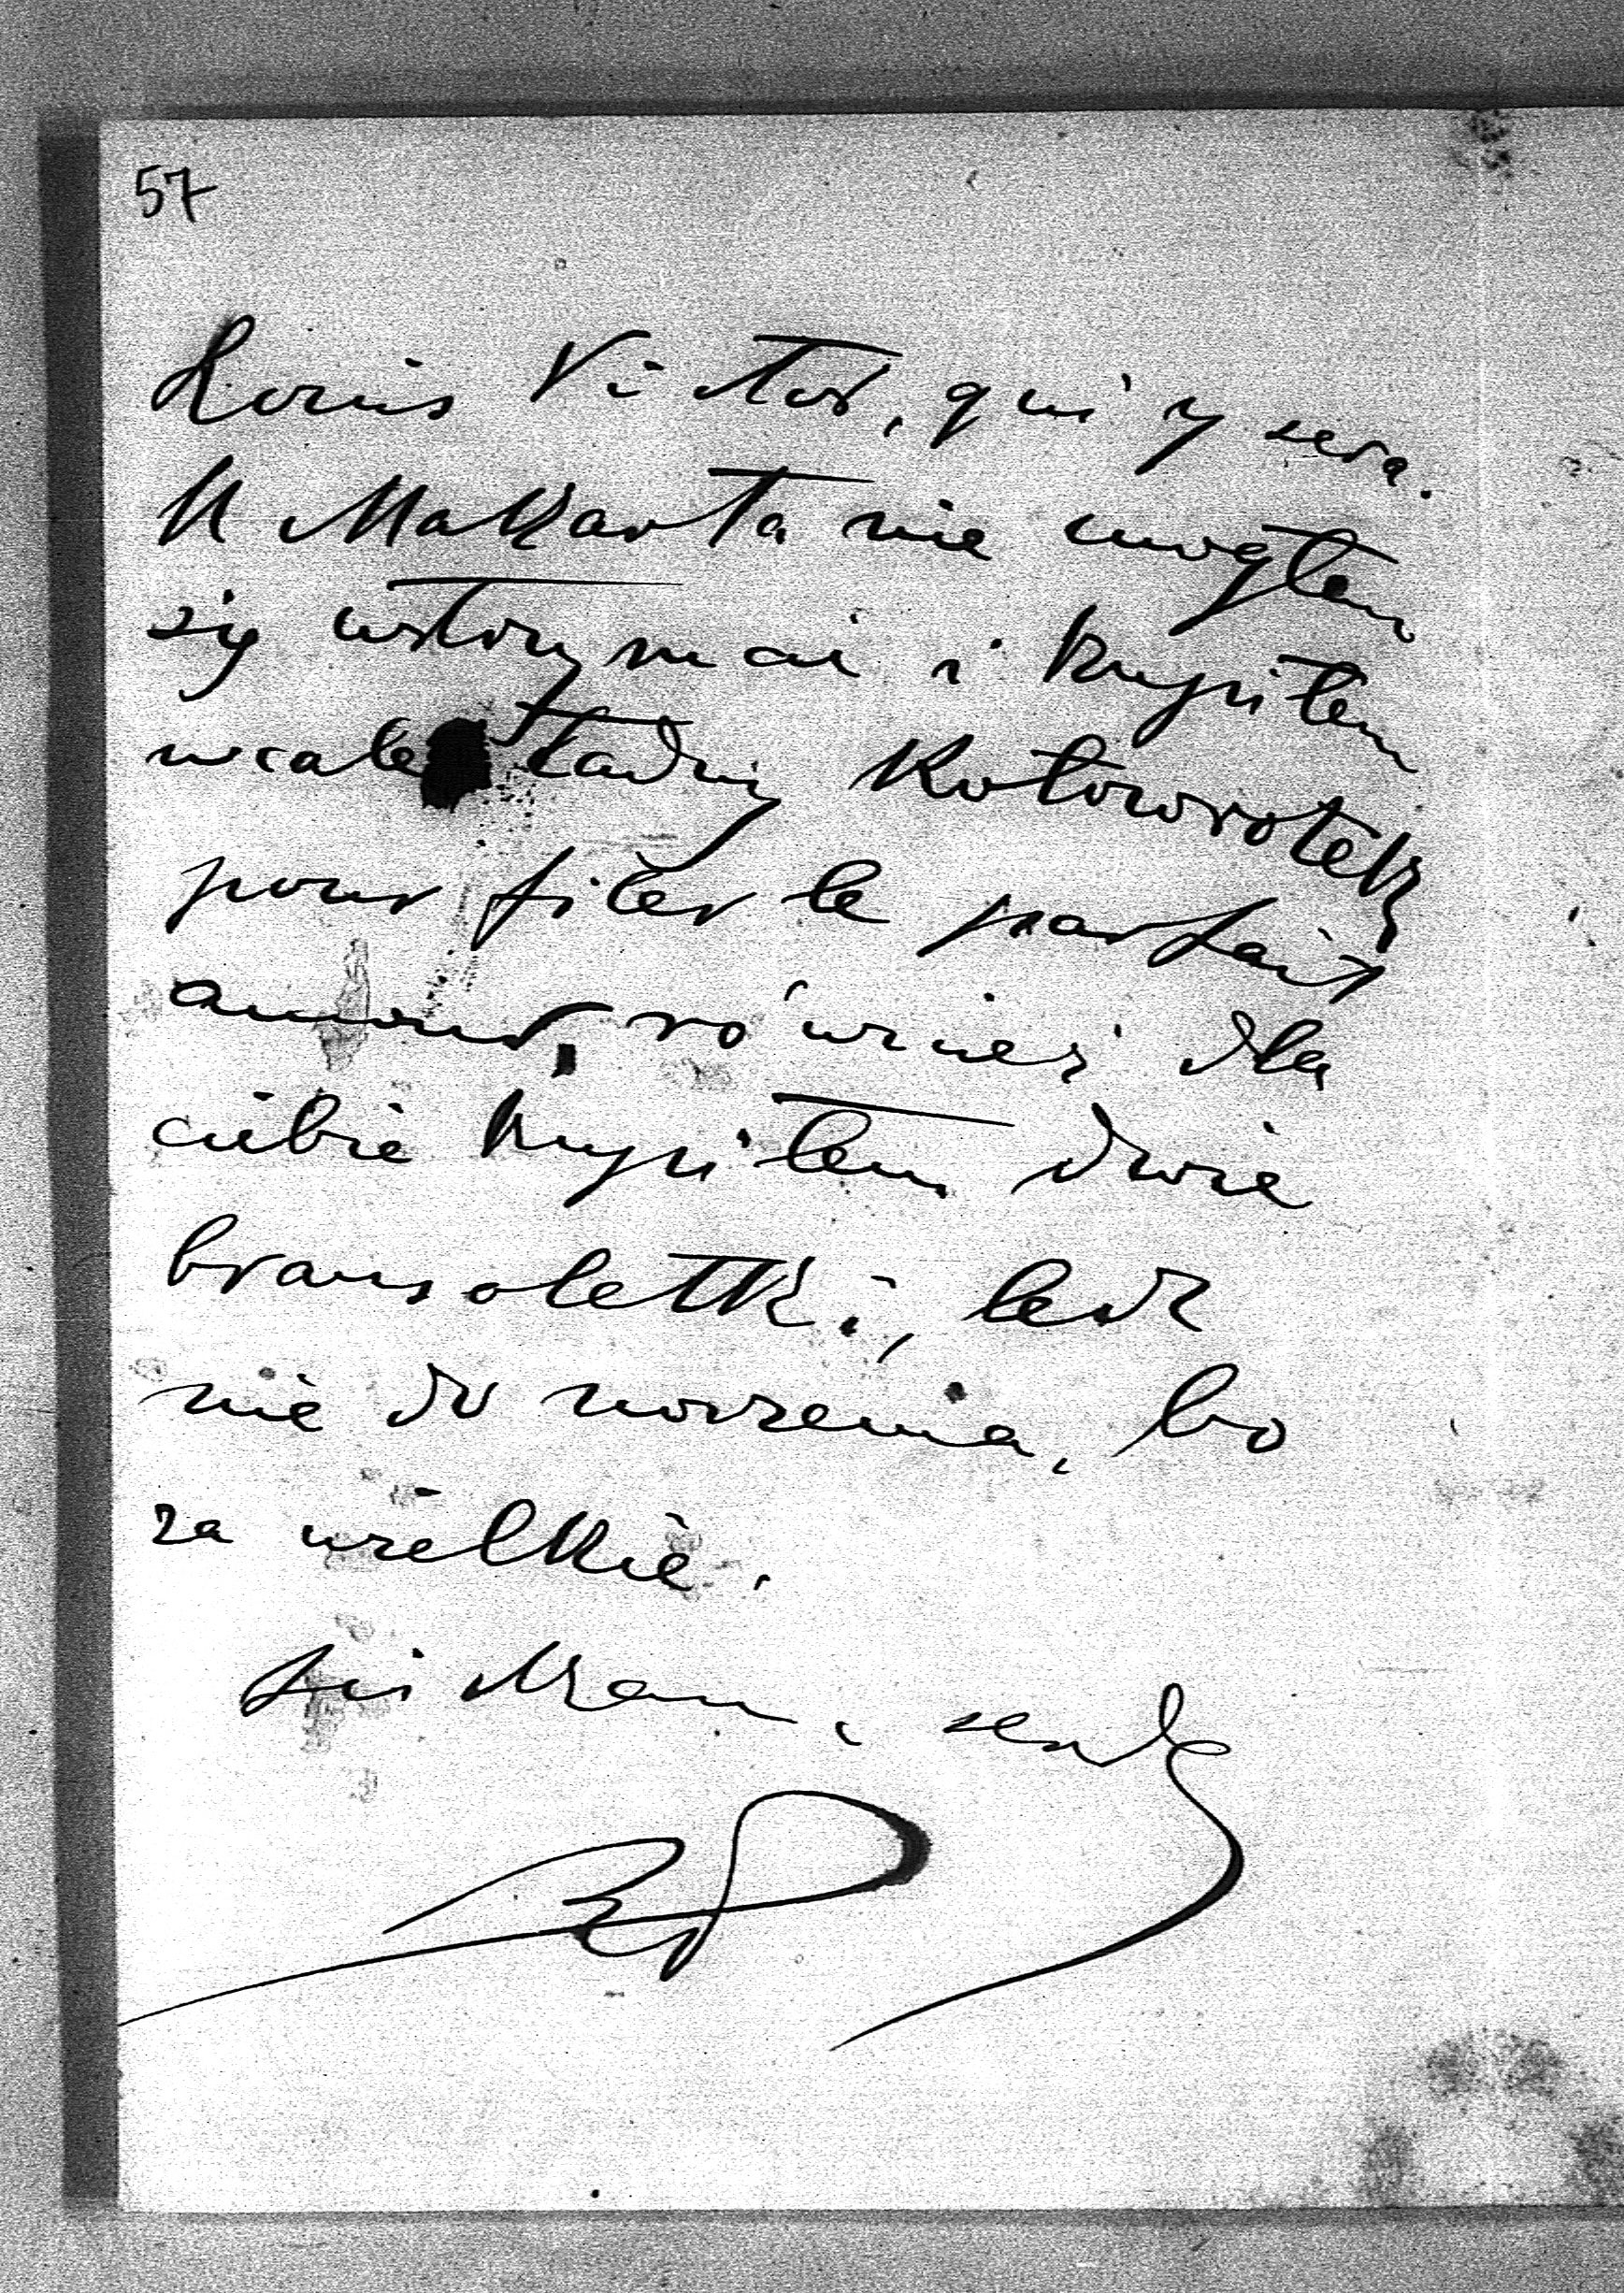 57
Louis Victor, qui y sera.
U Makarta nie mogłem
się wstrzymać i kupiłem
wcale ładny kołowrotek
pour filer le parfait
amour, również dla
ciebie kupiłem dwie
bransoletki, lecz
nie do noszenia, bo
za wielkie.